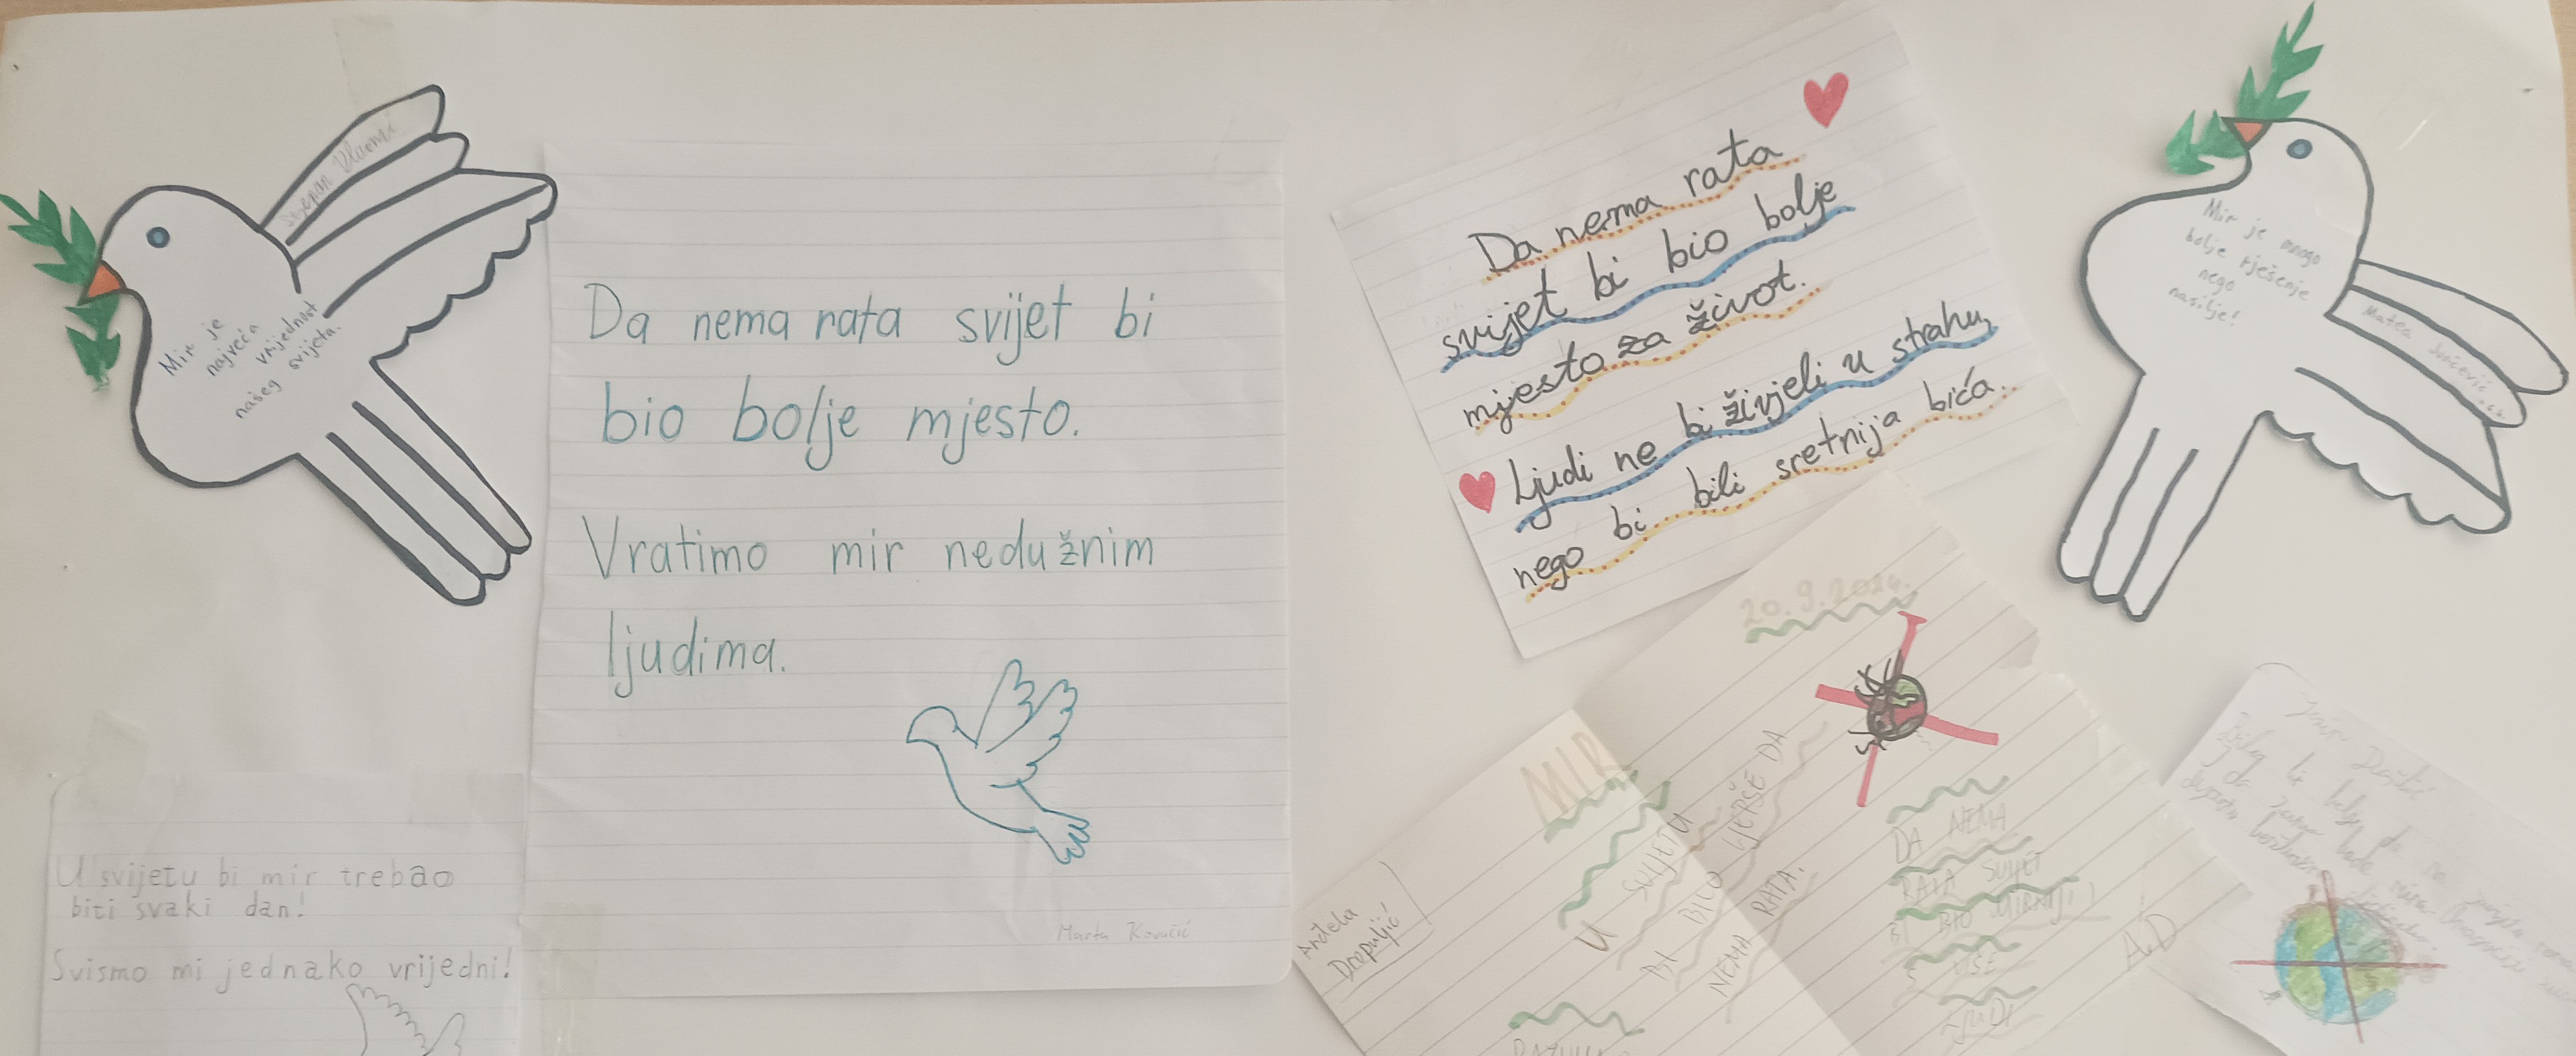 Stjepan
Mir je
najveća
vrijednost
našeg svijeta.
Da nema rata svijet bi
bio bolje mjesto.
Vratimo mir nedužnim
ljudima.
Marta Kovačić
U svijetu bi mir trebao
biti svaki dan!
Svismo mi jednako vrijedni!
Da nema rata
svijet bi bio bolje
mjesto za život.
Ljudi ne bi živjeli u strahu,
nego bi bili sretnija bića.
Mir je mnogo
bolje rješenje
nego
nasilje!
Matea
20.9.2024.
MIR
U SVIJETU
BI BILO LJEPŠE DA
NEMA RATA.
Anđela
Dropuljić
DA NEMA
RATA SVIJET
BI BIO MIRNIJI
I VIŠE
LJUDI
A.D